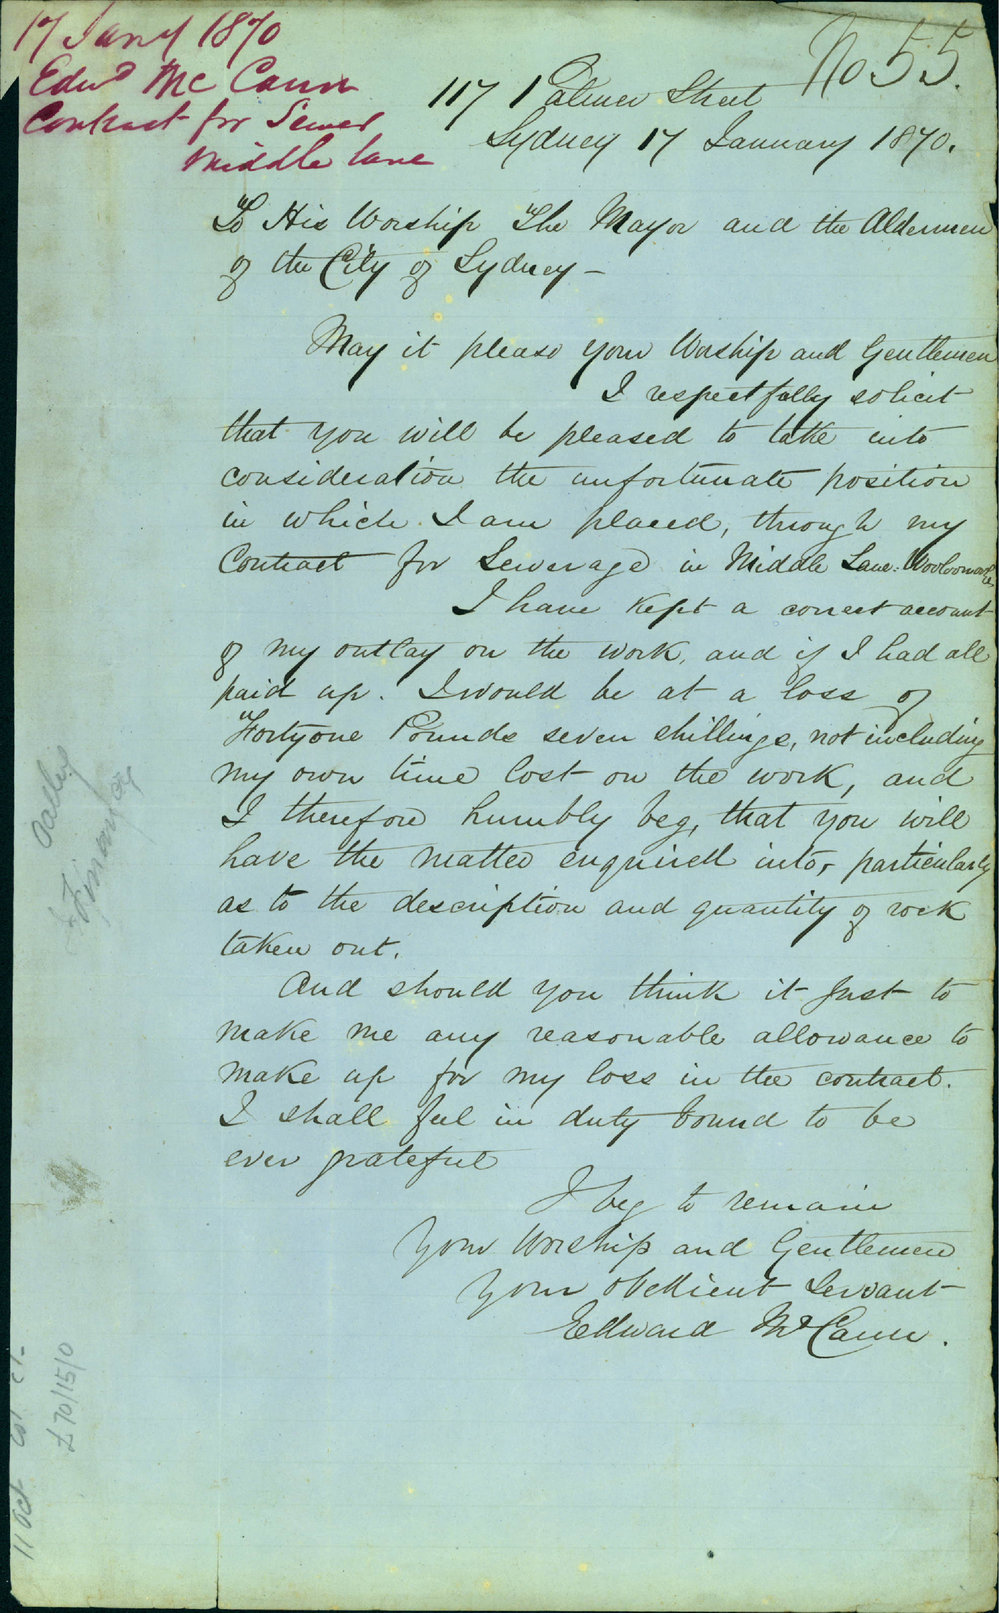 17 Jany 1870
Edwd Mc Cann
Contract for Sewer
Middle Lane
No 55.
117 Palmer Street
Sydney 17 January 1870.
To His Worship The Mayor and the Aldermen
of the City of Sydney –
May it please your Worship and Gentlemen
I respectfully solicit
that you will be pleased to take into
consideration the unfortunate position
in which I am placed, through my
Contract for Sewerage in Middle Lane
I have kept a correct account
of my outlay on the work, and if I had all
paid up. I would be at a loss of
Fortyone Pounds seven shillings, not including
my own time lost on the work, and
I therefore humbly beg, that you will
have the matter enquired into, particularly
as to the description and quantity of rock
taken out.
And should you think it Just to
make me any reasonable allowance to
make up for my loss in the contract.
I shall feel in duty bound to be
ever grateful
I beg to remain
Your Worship and Gentlemen
Your obedient Servant
Edward McCann.
Finance
£70/15/0
11 Oct